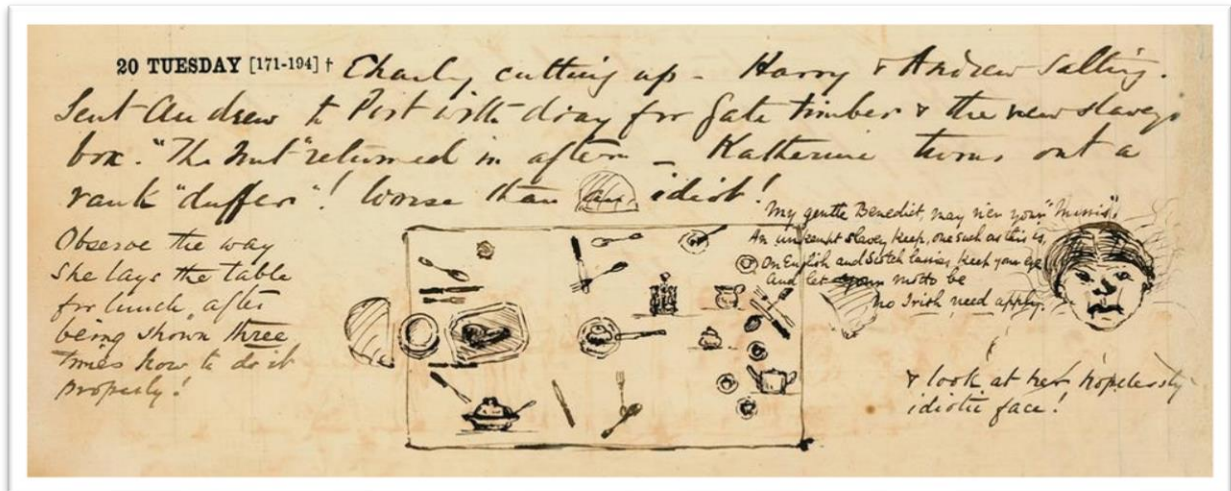 20 TUESDAY [171-194] † Charley cutting up – Harry & Andrew Salting.
Sent Andrew to Port with dray for Gate timber & the new slaveys
box. "The Nut" returned in aftern – Katherine turns out a
rank "duffer"! Worse than an idiot!
Observe the way
She lays the table
for lunch, after
being shown three
times how to do it
properly!
My gentle Benedict, may ne'er your
An unkempt slavey keep, one such as this is,
On English and Scotch lassies, keep your eye
And let your motto be
No Irish need apply.
& look at her hopelessly
idiotic face!